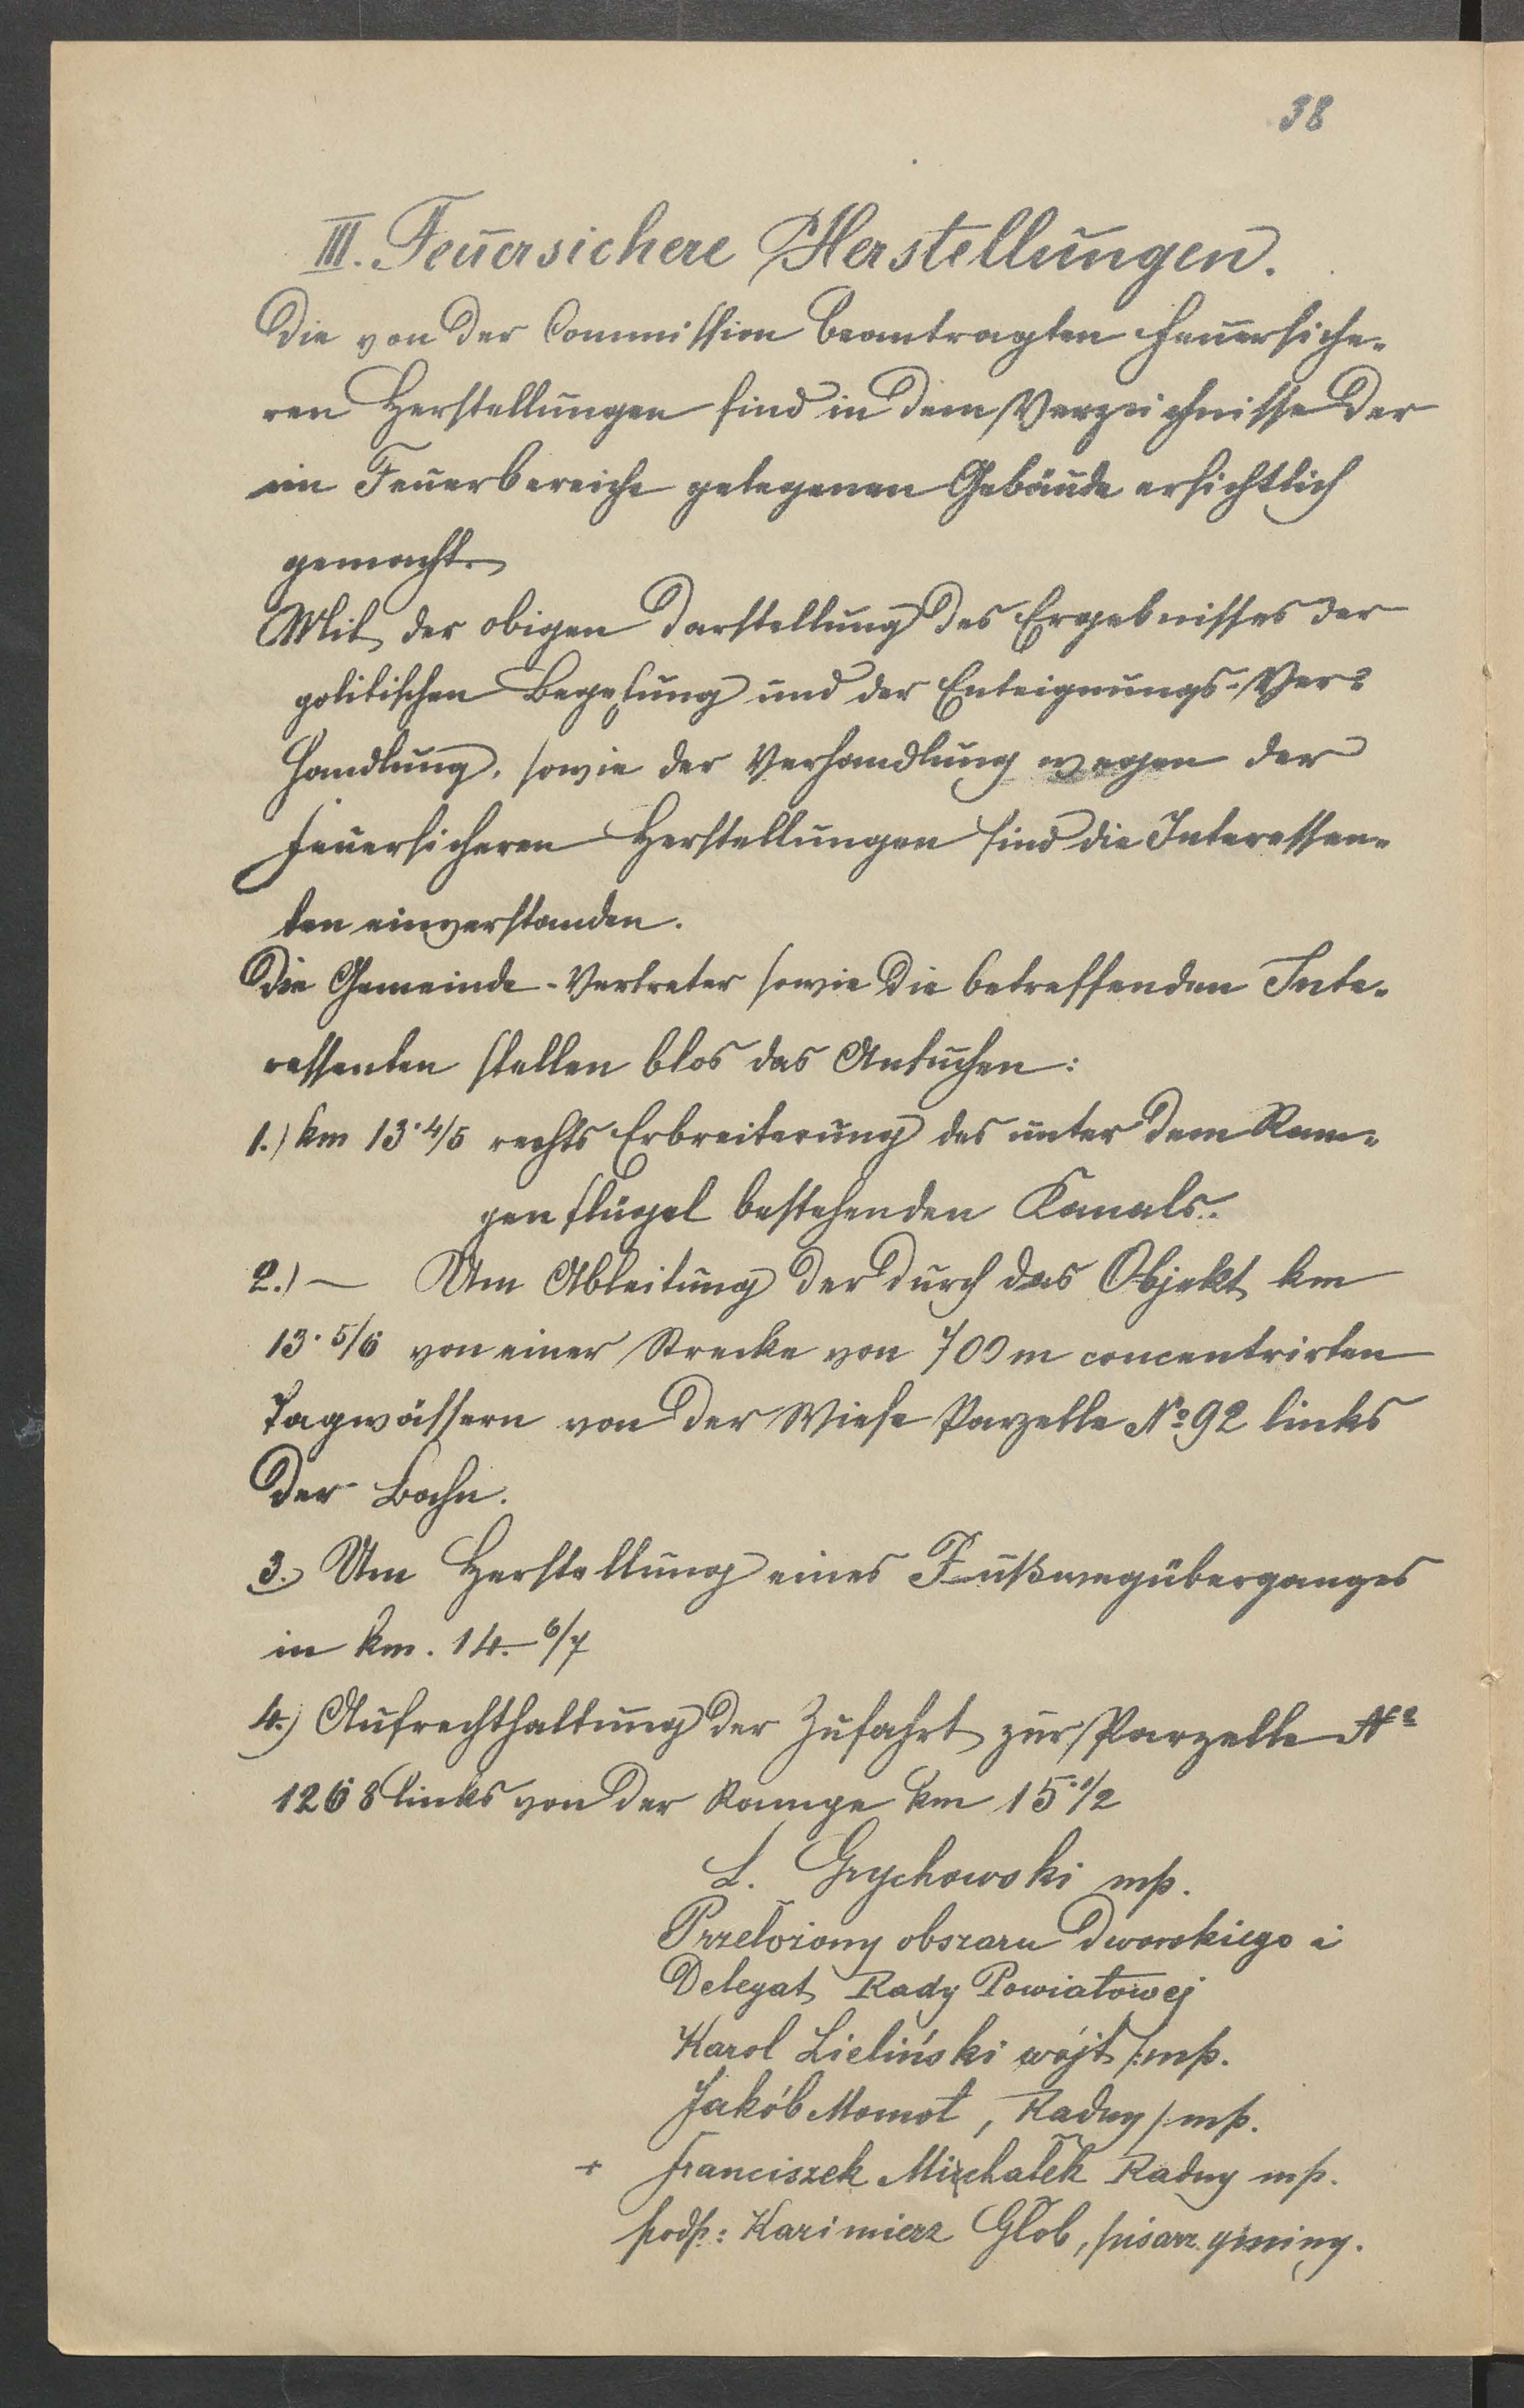 38
III. Feuersichere Herstellungen.
Die von der Commission beantragten feuersiche-
ren Herstellungen sind in dem Verzeichnisse der
im Feuerbereiche gelegenen Gebäude ersichtlich
gemacht.
Mit der obigen Darstellung des Ergebnisses der
politischen Begehung und der Enteignungs-Ver-
handlung, sowie der Verhandlung wegen der
feuersicheren Herstellungen sind die Interessen-
ten einverstanden.
Die Gemeinde-Vertreter sowie die betreffenden Inte-
ressenten stellen blos das Ansuchen:
1.) km 13·4/5 rechts Erbreiterung des unter dem Ram-
penflügel bestehenden Kanals.
2.) — Um Ableitung der durch das Objekt km
13·5/6 von einer Strecke von 700 m concentrirten
Tagwässern von der Wiese Parzelle No 92 links
der Bahn.
3.) Um Herstellung eines Fußwegüberganges
in km. 14.—6/7
4.) Aufrechthaltung der Zufahrt zur Parzelle No
1268 links von der Rampe km 15·1/2
L. Grychowski mp.
Przełożony obszaru Dworskiego i
Delegat Rady Powiatowej
Karol Zieliński wójt /:mp.
Jakób Momot, Radny /:mp.
+ Franciszek Michałek Radny mp.
podp: Kazimierz Głob, pisarz gminy.